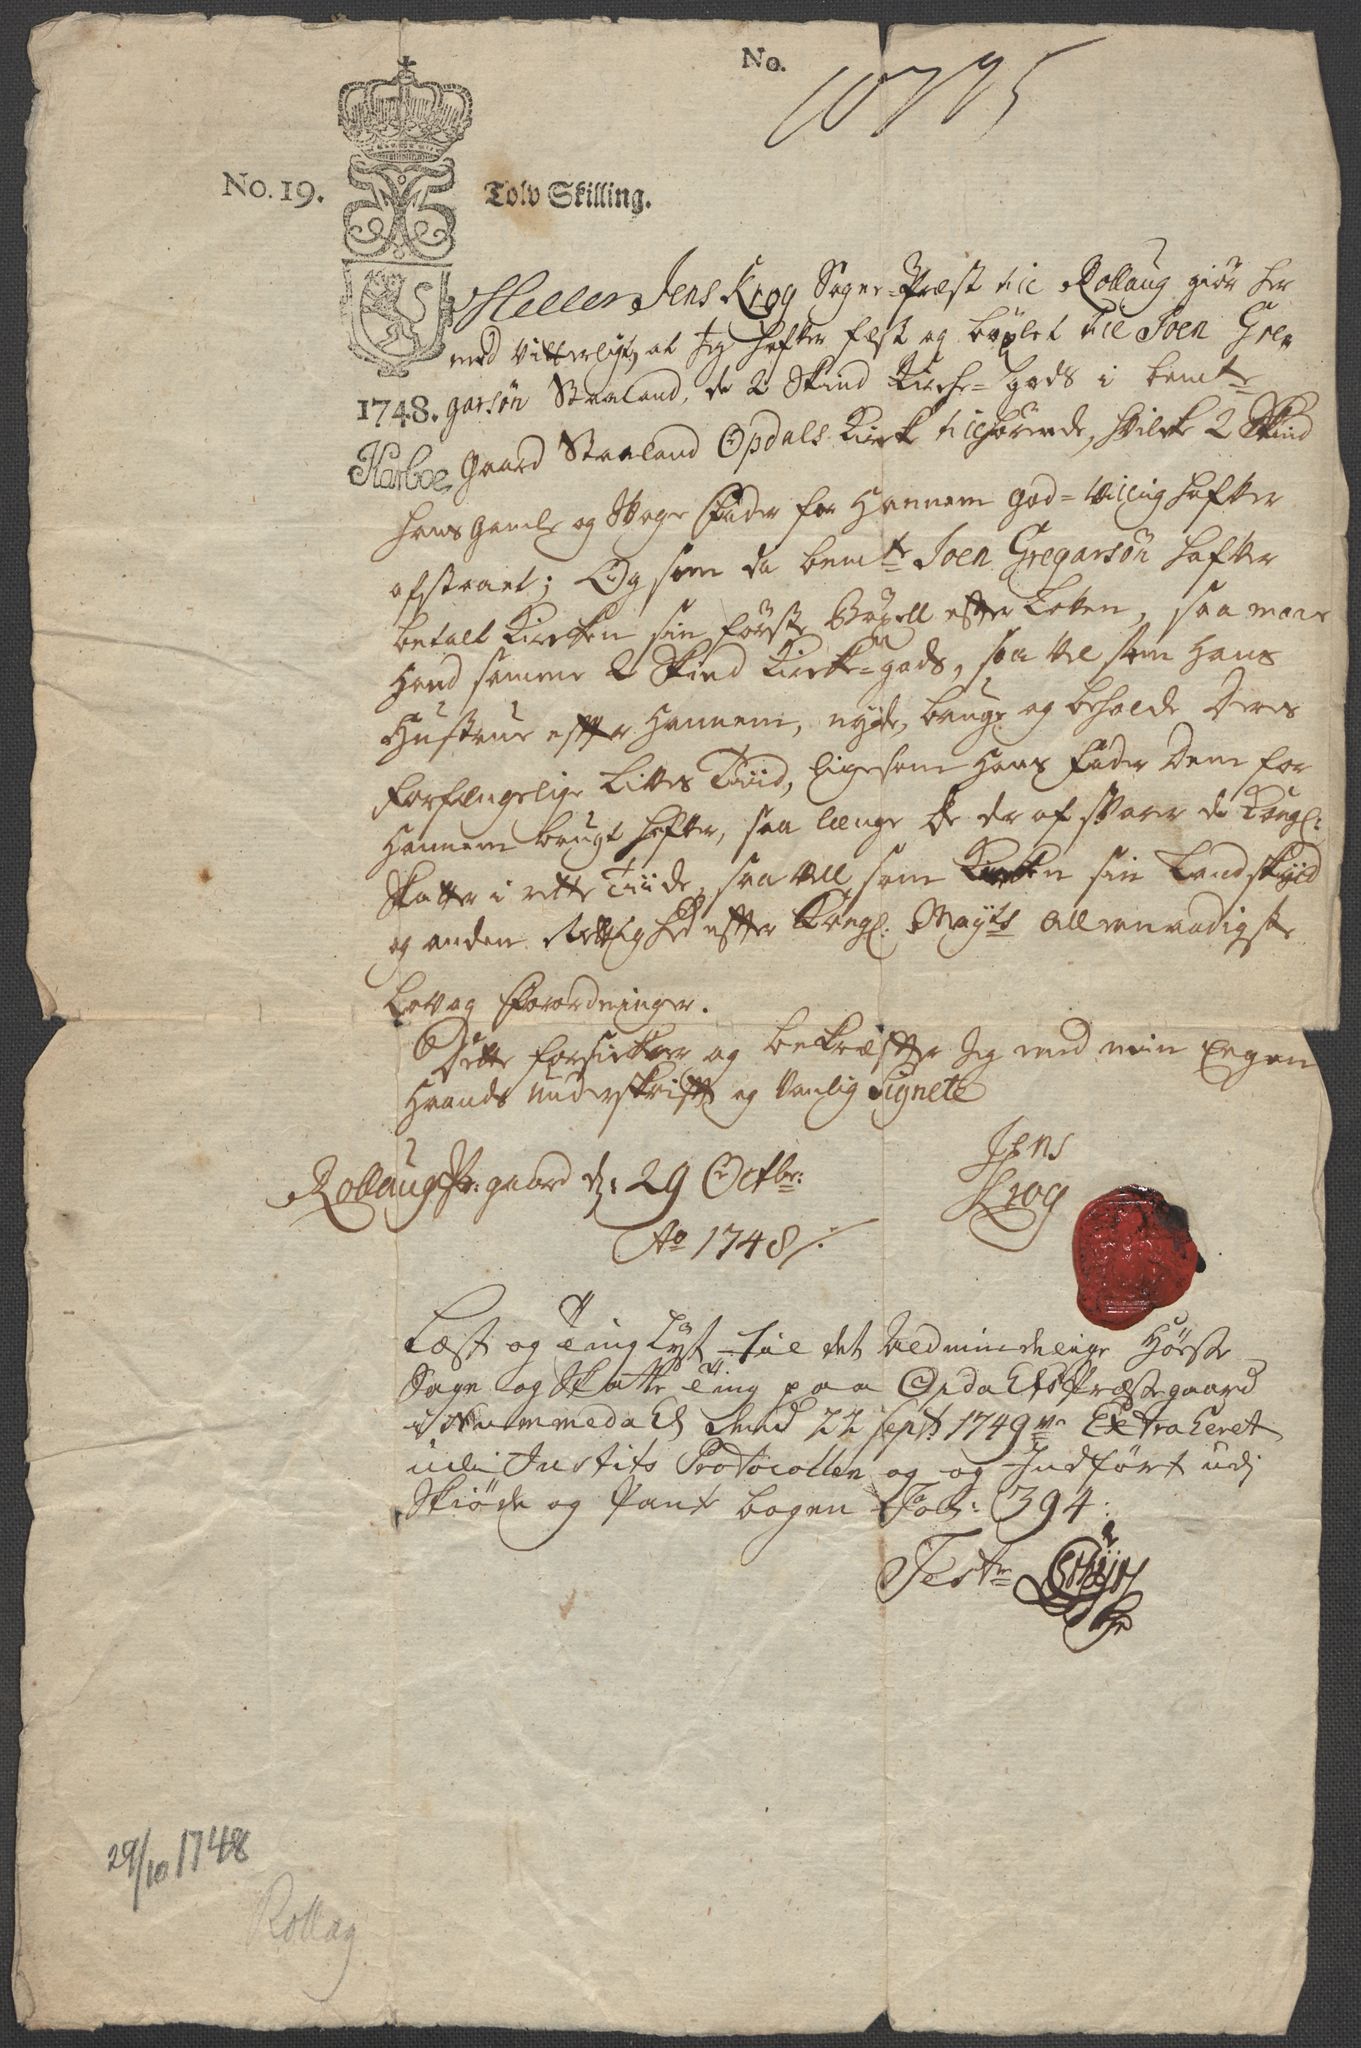 No. 10775
No. 19. Tolv Skilling.
1748.
Karboe
Jens Krog Sogne-Præst till Rollaug giør her
med vitterligt, at Jeg hafver fæst og böxlet till Joen Gre-
garsøn Straland, de 2 Skind Kirche-gods i bemte
gaard Straland Opdals Kirke tilhörende, hvilke 2 Skind
hans gamle og Svage Fader for Hannem god-villig hafver
afstaaet; Og som da bemte Joen Gregarsøn hafver
betalt Kircken sin første Böxell efter Loven, saa maae
Hand samme 2 Skind Kircke-gods, saa vel som Hans
Hustrue effter Hannem, nyde, bruge og beholde Deres
forfængelige Livves Tiid, ligesom Hans Fader Dem for
Hannem brugt hafver, saa længe De der af svarer de Kongl:
Skatter i rette Tiide, saa vell som Kircken sin Landskyld
og anden Rettighed effter Kongl. Mayts allernaadigste
Lov og Forordninger.
Dette forsickrer og bekræffter Jeg med min Eegen
Haands underskrifft og Vanlig Signete
Rollaugs Pr: gaard d: 29 Octbr: Jens
Ao 1748 /. Krog
Læst og Ting Lyst til det Aldmindelige Høste
Sage og Skatte Ting paa Opdahls Præstegaard
i Nummedahl dend 22 Sept: 1749 Extraheret
udi Justits Protocollen og og Indført udi
Skiøde og Pante bogen Fol: 394.
Test
29/10 1748
Rollag